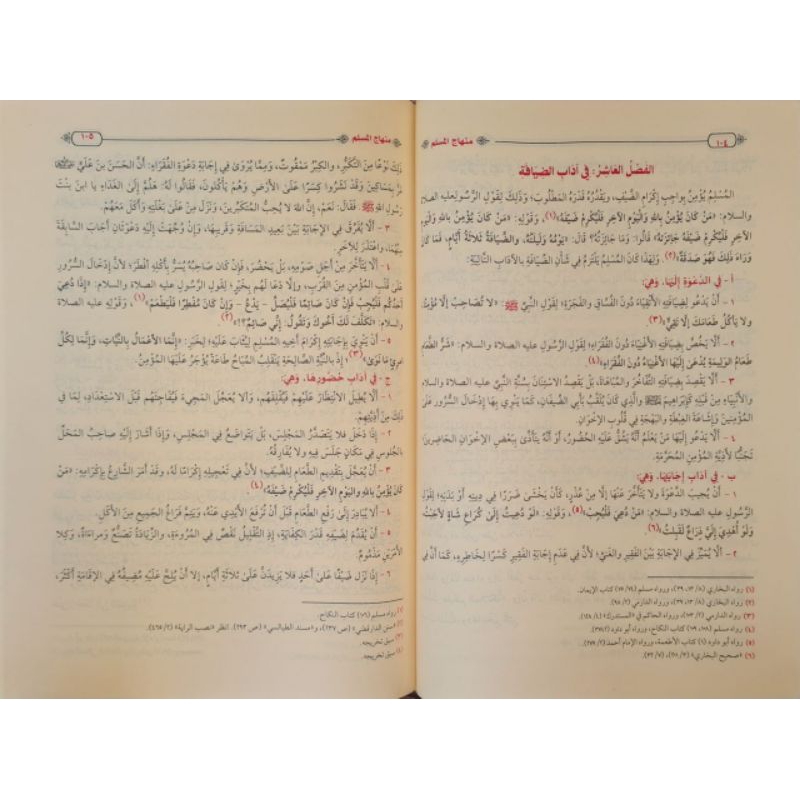 ١٠٤
منهاج المسلم
الفَصْلُ العَاشِرُ: فِي آدَابِ الضِّيَافَةِ
المُسْلِمُ يُؤْمِنُ بِوَاجِبِ إِكْرَامِ الضَّيْفِ، وَيُقَدِّرُهُ قَدْرَهُ المَطْلُوبَ؛ وَذَلِكَ لِقَوْلِ الرَّسُولِ عليه الصلاة
والسلام: «مَنْ كَانَ يُؤْمِنُ بِاللهِ وَاليَوْمِ الآخِرِ فَلْيُكْرِمْ ضَيْفَهُ»(١)، وَقَوْلِهِ: «مَنْ كَانَ يُؤْمِنُ بِاللهِ وَاليَوْمِ
الآخِرِ فَلْيُكْرِمْ ضَيْفَهُ جَائِزَتَهُ» قَالُوا: وَمَا جَائِزَتُهُ؟ قَالَ: «يَوْمُهُ وَلَيْلَتُهُ، وَالضِّيَافَةُ ثَلَاثَةُ أَيَّامٍ، فَمَا كَانَ
وَرَاءَ ذَلِكَ فَهُوَ صَدَقَةٌ»(٢). وَلِهَذَا كَانَ المُسْلِمُ يَلْتَزِمُ فِي شَأْنِ الضِّيَافَةِ بِالآدَابِ التَّالِيَةِ:
أ - فِي الدَّعْوَةِ إِلَيْهَا، وَهِيَ:
١ - أَنْ يَدْعُوَ لِضِيَافَتِهِ الأَتْقِيَاءَ دُونَ الفُسَّاقِ وَالفَجَرَةِ؛ لِقَوْلِ النَّبِيِّ ﷺ: «لَا تُصَاحِبْ إِلَّا مُؤْمِنًا
وَلَا يَأْكُلْ طَعَامَكَ إِلَّا تَقِيٌّ»(٣).
٢ - أَلَّا يَخُصَّ بِضِيَافَتِهِ الأَغْنِيَاءَ دُونَ الفُقَرَاءِ؛ لِقَوْلِ الرَّسُولِ عليه الصلاة والسلام: «شَرُّ الطَّعَامِ
طَعَامُ الوَلِيمَةِ يُدْعَى إِلَيْهَا الأَغْنِيَاءُ دُونَ الفُقَرَاءِ»(٤).
٣ - أَلَّا يَقْصِدَ بِضِيَافَتِهِ التَّفَاخُرَ وَالمُبَاهَاةَ، بَلْ يَقْصِدُ الاسْتِنَانَ بِسُنَّةِ النَّبِيِّ عليه الصلاة
وَالأَنْبِيَاءِ مِنْ قَبْلِهِ كَإِبْرَاهِيمَ ﷺ وَالَّذِي كَانَ يُلَقَّبُ بِأَبِي الضِّيفَانِ، كَمَا يَنْوِي بِهَا إِدْخَالَ السُّرُورِ عَلَى
المُؤْمِنِينَ وَإِشَاعَةَ الغِبْطَةِ وَالبَهْجَةِ فِي قُلُوبِ الإِخْوَانِ.
٤ - أَلَّا يَدْعُوَ إِلَيْهَا مَنْ يَعْلَمُ أَنَّهُ يَشُقُّ عَلَيْهِ الحُضُورُ، أَوْ أَنَّهُ يَتَأَذَّى بِبَعْضِ الإِخْوَانِ الحَاضِرِينَ؛
تَجَنُّبًا لِأَذِيَّةِ المُؤْمِنِ المُحَرَّمَةِ.
ب - فِي آدَابِ إِجَابَتِهَا، وَهِيَ:
١ - أَنْ يُجِيبَ الدَّعْوَةَ وَلَا يَتَأَخَّرَ عَنْهَا إِلَّا مِنْ عُذْرٍ، كَأَنْ يَخْشَى ضَرَرًا فِي دِينِهِ أَوْ بَدَنِهِ؛ لِقَوْلِ
الرَّسُولِ عليه الصلاة والسلام: «مَنْ دُعِيَ فَلْيُجِبْ»(٥)، وَقَوْلِهِ: «لَوْ دُعِيتُ إِلَى كُرَاعِ شَاةٍ لَأَجَبْتُ
وَلَوْ أُهْدِيَ إِلَيَّ ذِرَاعٌ لَقَبِلْتُ»(٦).
٢ - أَلَّا يُمَيِّزَ فِي الإِجَابَةِ بَيْنَ الفَقِيرِ وَالغَنِيِّ؛ لِأَنَّ فِي عَدَمِ إِجَابَةِ الفَقِيرِ كَسْرًا لِخَاطِرِهِ، كَمَا أَنَّ فِي
(١) رواه البخاري (٨/ ١٣، ٣٩)، ورواه مسلم كتاب الإيمان.
(٢) رواه البخاري (٨/ ١٣، ٣٩)، ورواه الدارمي (٢/ ٩٨).
(٣) رواه الدارمي، ورواه الحاكم في «المستدرك».
(٤) رواه مسلم كتاب النكاح، ورواه أبو داود.
(٥) رواه أبو داود كتاب الأطعمة، ورواه الإمام أحمد.
(٦) «صحيح البخاري».
منهاج المسلم
١٠٥
ذَلِكَ نَوْعًا مِنَ التَّكَبُّرِ، وَالكِبْرُ مَمْقُوتٌ، وَمِمَّا يُرْوَى فِي إِجَابَةِ دَعْوَةِ الفُقَرَاءِ: أَنَّ الحَسَنَ بنَ عَلِيٍّ
مَرَّ بِمَسَاكِينَ وَقَدْ نَشَرُوا كِسَرًا عَلَى الأَرْضِ وَهُمْ يَأْكُلُونَ، فَقَالُوا لَهُ: هَلُمَّ إِلَى الغَدَاءِ يَا ابنَ بِنْتِ
رَسُولِ اللهِ ﷺ. فَقَالَ: نَعَمْ، إِنَّ اللهَ لَا يُحِبُّ المُتَكَبِّرِينَ، وَنَزَلَ مِنْ عَلَى بَغْلَتِهِ وَأَكَلَ مَعَهُمْ.
٣ - أَلَّا يُفَرِّقَ فِي الإِجَابَةِ بَيْنَ بَعِيدِ المَسَافَةِ وَقَرِيبِهَا، وَإِنْ وُجِّهَتْ إِلَيْهِ دَعْوَتَانِ أَجَابَ السَّابِقَةَ
مِنْهُمَا، وَاعْتَذَرَ لِلآخَرِ.
٤ - أَلَّا يَتَأَخَّرَ مِنْ أَجْلِ صَوْمِهِ، بَلْ يَحْضُرُ، فَإِنْ كَانَ صَاحِبُهُ يُسَرُّ بِأَكْلِهِ أَفْطَرَ؛ لِأَنَّ إِدْخَالَ السُّرُورِ
عَلَى قَلْبِ المُؤْمِنِ مِنَ القُرَبِ، وَإِلَّا دَعَا لَهُمْ بِخَيْرٍ؛ لِقَوْلِ الرَّسُولِ عليه الصلاة والسلام: «إِذَا دُعِيَ
أَحَدُكُمْ فَلْيُجِبْ فَإِنْ كَانَ صَائِمًا فَلْيُصَلِّ - يَدْعُ - وَإِنْ كَانَ مُفْطِرًا فَلْيَطْعَمْ»(١)، وَقَوْلِهِ عليه الصلاة
والسلام: «تَكَلَّفَ لَكَ أَخُوكَ وَتَقُولُ: إِنِّي صَائِمٌ؟!»(٢).
٥ - أَنْ يَنْوِيَ بِإِجَابَتِهِ إِكْرَامَ أَخِيهِ المُسْلِمِ لِيُثَابَ عَلَيْهِ؛ لِخَبَرِ: «إِنَّمَا الأَعْمَالُ بِالنِّيَّاتِ، وَإِنَّمَا لِكُلِّ
امْرِئٍ مَا نَوَى»(٣)؛ إِذْ بِالنِّيَّةِ الصَّالِحَةِ يَنْقَلِبُ المُبَاحُ طَاعَةً يُؤْجَرُ عَلَيْهَا المُؤْمِنُ.
ج - فِي آدَابِ حُضُورِهَا، وَهِيَ:
١ - أَلَّا يُطِيلَ الانْتِظَارَ عَلَيْهِمْ فَيُقْلِقَهُمْ، وَأَلَّا يُعَجِّلَ المَجِيءَ فَيُفَاجِئَهُمْ قَبْلَ الاسْتِعْدَادِ، لِمَا فِي
ذَلِكَ مِنْ أَذِيَّتِهِمْ.
٢ - إِذَا دَخَلَ فَلَا يَتَصَدَّرُ المَجْلِسَ، بَلْ يَتَوَاضَعُ فِي المَجْلِسِ، وَإِذَا أَشَارَ إِلَيْهِ صَاحِبُ المَحَلِّ
بِالجُلُوسِ فِي مَكَانٍ جَلَسَ فِيهِ وَلَا يُفَارِقُهُ.
٣ - أَنْ يُعَجِّلَ بِتَقْدِيمِ الطَّعَامِ لِلضَّيْفِ؛ لِأَنَّ فِي تَعْجِيلِهِ إِكْرَامًا لَهُ، وَقَدْ أَمَرَ الشَّارِعُ بِإِكْرَامِهِ: «مَنْ
كَانَ يُؤْمِنُ بِاللهِ وَاليَوْمِ الآخِرِ فَلْيُكْرِمْ ضَيْفَهُ»(٤).
٤ - أَلَّا يُبَادِرَ إِلَى رَفْعِ الطَّعَامِ قَبْلَ أَنْ تُرْفَعَ الأَيْدِي عَنْهُ، وَيَتِمَّ فَرَاغُ الجَمِيعِ مِنَ الأَكْلِ.
٥ - أَنْ يُقَدِّمَ لِضَيْفِهِ قَدْرَ الكِفَايَةِ، إِذِ التَّقْلِيلُ نَقْصٌ فِي المُرُوءَةِ، وَالزِّيَادَةُ تَصَنُّعٌ وَمُرَاءَاةٌ، وَكِلَا
الأَمْرَيْنِ مَذْمُومٌ.
٦ - إِذَا نَزَلَ ضَيْفًا عَلَى أَحَدٍ فَلَا يَزِيدَنَّ عَلَى ثَلَاثَةِ أَيَّامٍ، إِلَّا أَنْ يُلِحَّ عَلَيْهِ مُضِيفُهُ فِي الإِقَامَةِ أَكْثَرَ،
(١) رواه مسلم (١٠٦) كتاب النكاح.
(٢) «سنن الدارقطني» (ص ٢٣٧)، و«مسند الطيالسي» (ص ٢٩٣). انظر «نصب الراية» (٢/ ٤٦٥).
(٣) سبق تخريجه.
(٤) سبق تخريجه.